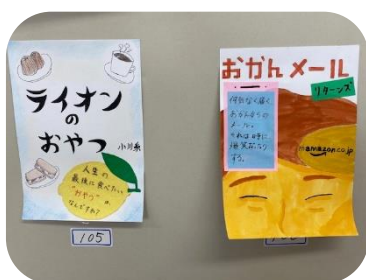 ライオン
の
おやつ
小川糸
人生の
最後に食べたい
"おやつ"は、
なんですか?
105
おかんメール
リターンズ
何気なく届く
おかんからの
メール。
それは時に
爆笑ものと
する。
amazon.co.jp